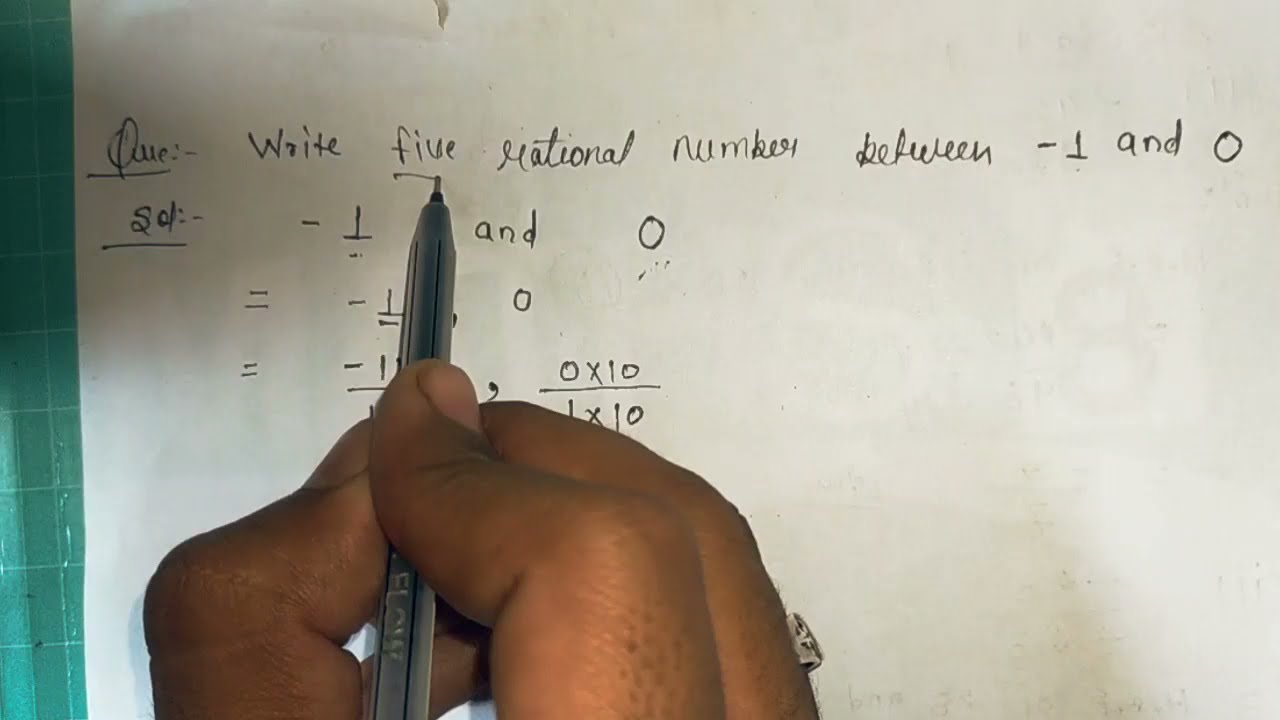 Que:- Write five rational number between -1 and 0
Sol:- - 1 and 0
= - 1 , 0
= -1 , 0x10
1x10
FLOW